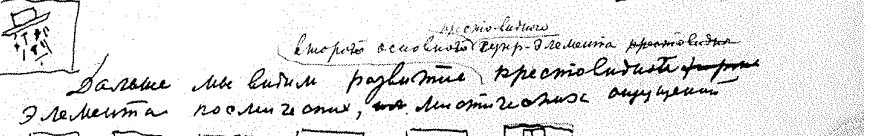 крестовидного
второго основного супр-элемента крестовидн
Дальше мы видим развитие крестовидн
Элемента космических, мистических ощущений